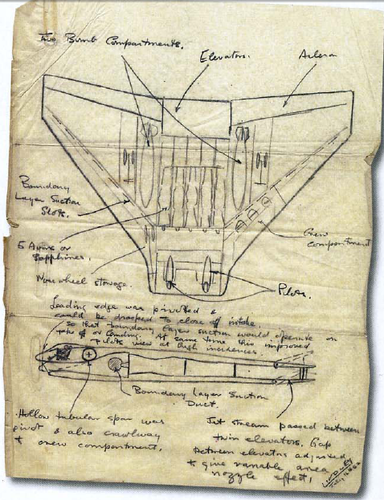 Two Bomb Compartments.
Elevators.
Aileron
Boundary
Layer Suction
Slots.
5 Avons or
Sapphires.
Crew
Compartment
Nose wheel stowage.
Pilots.
Leading edge was pivoted &
could be drooped to close off intake
so that boundary layer suction would operate on
take off or landing. At same time this improved
pilots view at high incidences.
Boundary Layer Suction
Duct.
Hollow tubular spar was
pivot & also crawlway
to crew compartment.
Jet stream passed between
twin elevators. Gap
between elevators adjusted
to give variable area
nozzle effect.